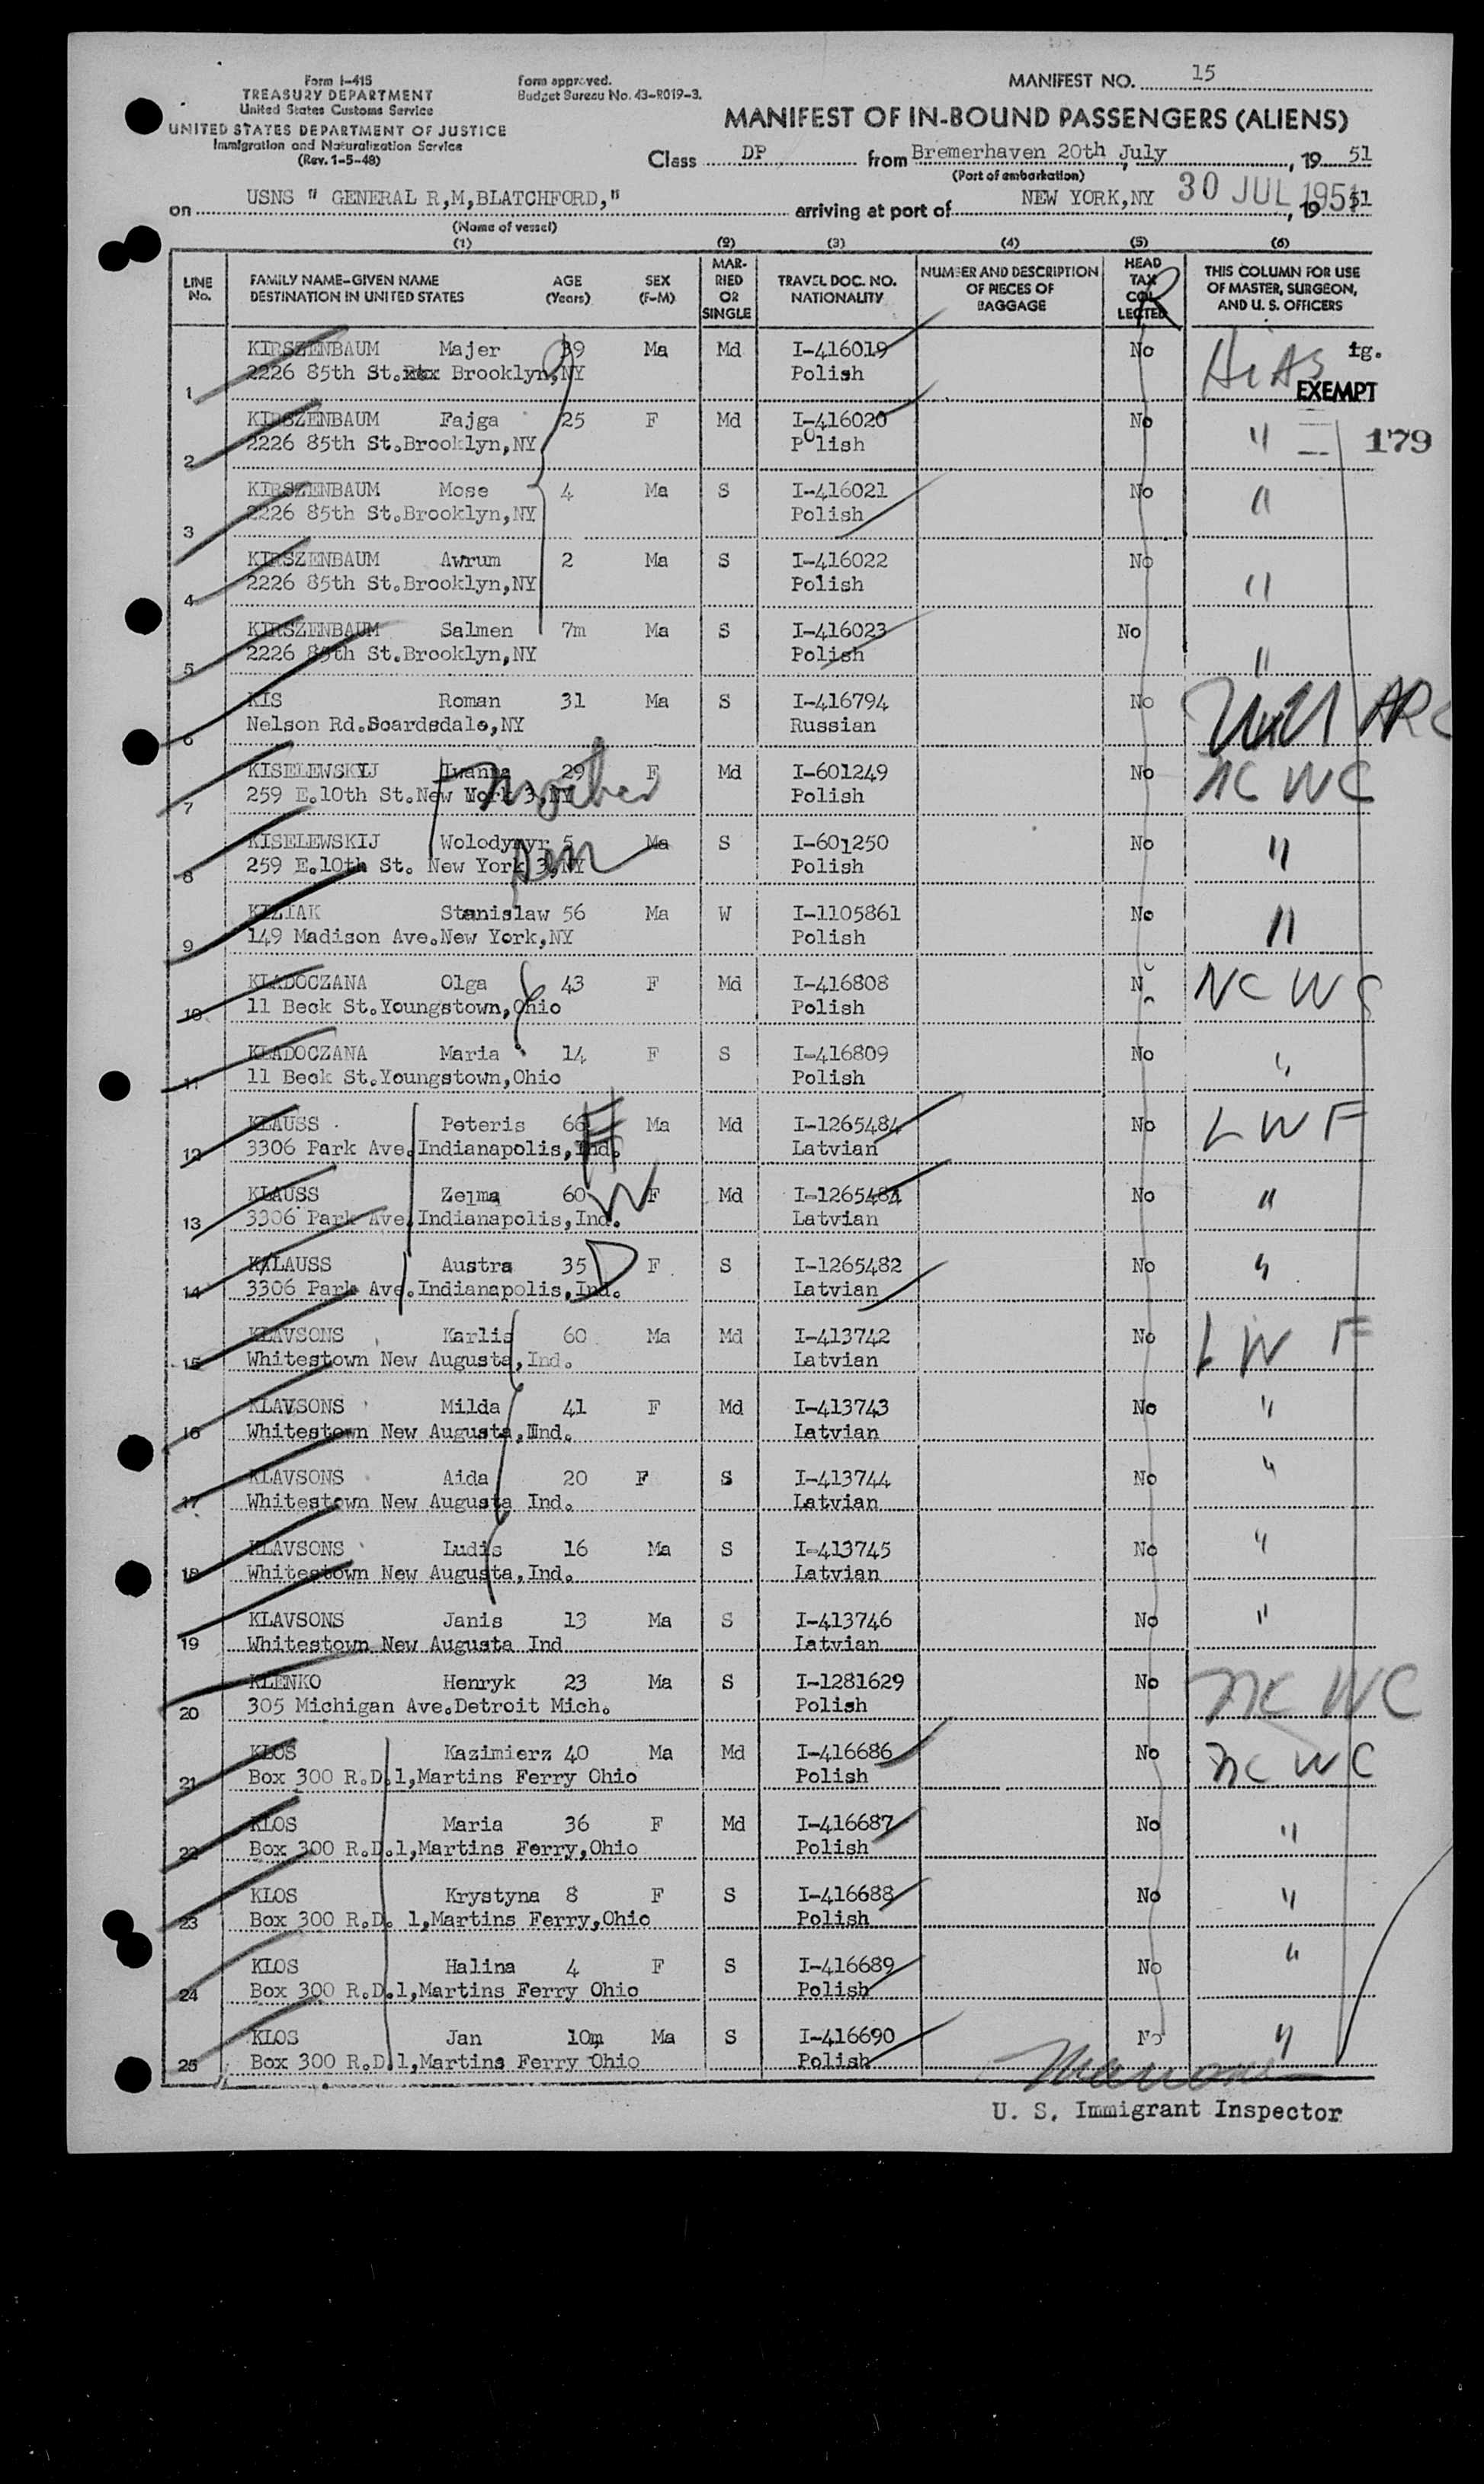 Form I-415
TREASURY DEPARTMENT
United States Customs Service
UNITED STATES DEPARTMENT OF JUSTICE
Immigration and Naturalization Service
(Rev. 1-5-48)
Form approved.
Budget Bureau No. 43-R019-3.
MANIFEST NO. 15
MANIFEST OF IN-BOUND PASSENGERS (ALIENS)
Class DP from Bremerhaven 20th July, 19 51
(Port of embarkation)
on USNS " GENERAL R,M,BLATCHFORD," arriving at port of NEW YORK,NY 30 JUL 1951, 19 51
(Name of vessel)
(1) (2) (3) (4) (5) (6)
LINE No. FAMILY NAME-GIVEN NAME DESTINATION IN UNITED STATES AGE (Years) SEX (F-M) MARRIED OR SINGLE TRAVEL DOC. NO. NATIONALITY NUMBER AND DESCRIPTION OF PIECES OF BAGGAGE HEAD TAX COLLECTED THIS COLUMN FOR USE OF MASTER, SURGEON, AND U. S. OFFICERS
R
KIRSZENBAUM Majer 39 Ma Md I-416019 No HiAS tg.
1 2226 85th St. Brooklyn,NY Polish EXEMPT
KIRSZENBAUM Fajga 25 F Md I-416020 No " 179
2 2226 85th St.Brooklyn,NY Polish
KIRSZENBAUM Mose 4 Ma S I-416021 No "
3 2226 85th St.Brooklyn,NY Polish
KIRSZENBAUM Awrum 2 Ma S I-416022 No "
4 2226 85th St.Brooklyn,NY Polish
KIRSZENBAUM Salmen 7m Ma S I-416023 No "
5 2226 85th St.Brooklyn,NY Polish
KIS Roman 31 Ma S I-416794 No
6 Nelson Rd.Scardsdale,NY Russian
KISELEWSKYJ Iwanna 29 F Md I-601249 No NCWC
7 259 E.10th St.New York 3,NY Polish
mother
KISELEWSKIJ Wolodymyr 5 Ma S I-601250 No "
8 259 E.10th St. New York 3,NY Polish
son
KIZIAK Stanislaw 56 Ma W I-1105861 No "
9 149 Madison Ave.New York,NY Polish
KLADOCZANA Olga 43 F Md I-416808 N NCWC
10 11 Beck St.Youngstown,Ohio Polish
KLADOCZANA Maria 14 F S I-416809 No "
11 11 Beck St.Youngstown,Ohio Polish
KLAUSS Peteris 66 H Ma Md I-1265484 No LWF
12 3306 Park Ave.Indianapolis,Ind. Latvian
KLAUSS Zelma 60 W F Md I-1265484 No "
13 3306 Park Ave.Indianapolis,Ind. Latvian
KLAUSS Austra 35 D F S I-1265482 No "
14 3306 Park Ave.Indianapolis,Ind. Latvian
KLAVSONS Karlis 60 Ma Md I-413742 No LWF
15 Whitestown New Augusta,Ind. Latvian
KLAVSONS Milda 41 F Md I-413743 No "
16 Whitestown New Augusta,Ind. Latvian
KLAVSONS Aida 20 F S I-413744 No "
17 Whitestown New Augusta Ind. Latvian
KLAVSONS Ludis 16 Ma S I-413745 No "
18 Whitestown New Augusta,Ind. Latvian
KLAVSONS Janis 13 Ma S I-413746 No "
19 Whitestown New Augusta Ind Latvian
KLENKO Henryk 23 Ma S I-1281629 No NCWC
20 305 Michigan Ave.Detroit Mich. Polish
KLOS Kazimierz 40 Ma Md I-416686 No NCWC
21 Box 300 R.D.1,Martins Ferry Ohio Polish
KLOS Maria 36 F Md I-416687 No "
22 Box 300 R.D.1,Martins Ferry,Ohio Polish
KLOS Krystyna 8 F S I-416688 No "
23 Box 300 R.D. 1,Martins Ferry,Ohio Polish
KLOS Halina 4 F S I-416689 No "
24 Box 300 R.D.1,Martins Ferry Ohio Polish
KLOS Jan 10m Ma S I-416690 No "
25 Box 300 R.D.1,Martins Ferry Ohio Polish
U. S. Immigrant Inspector